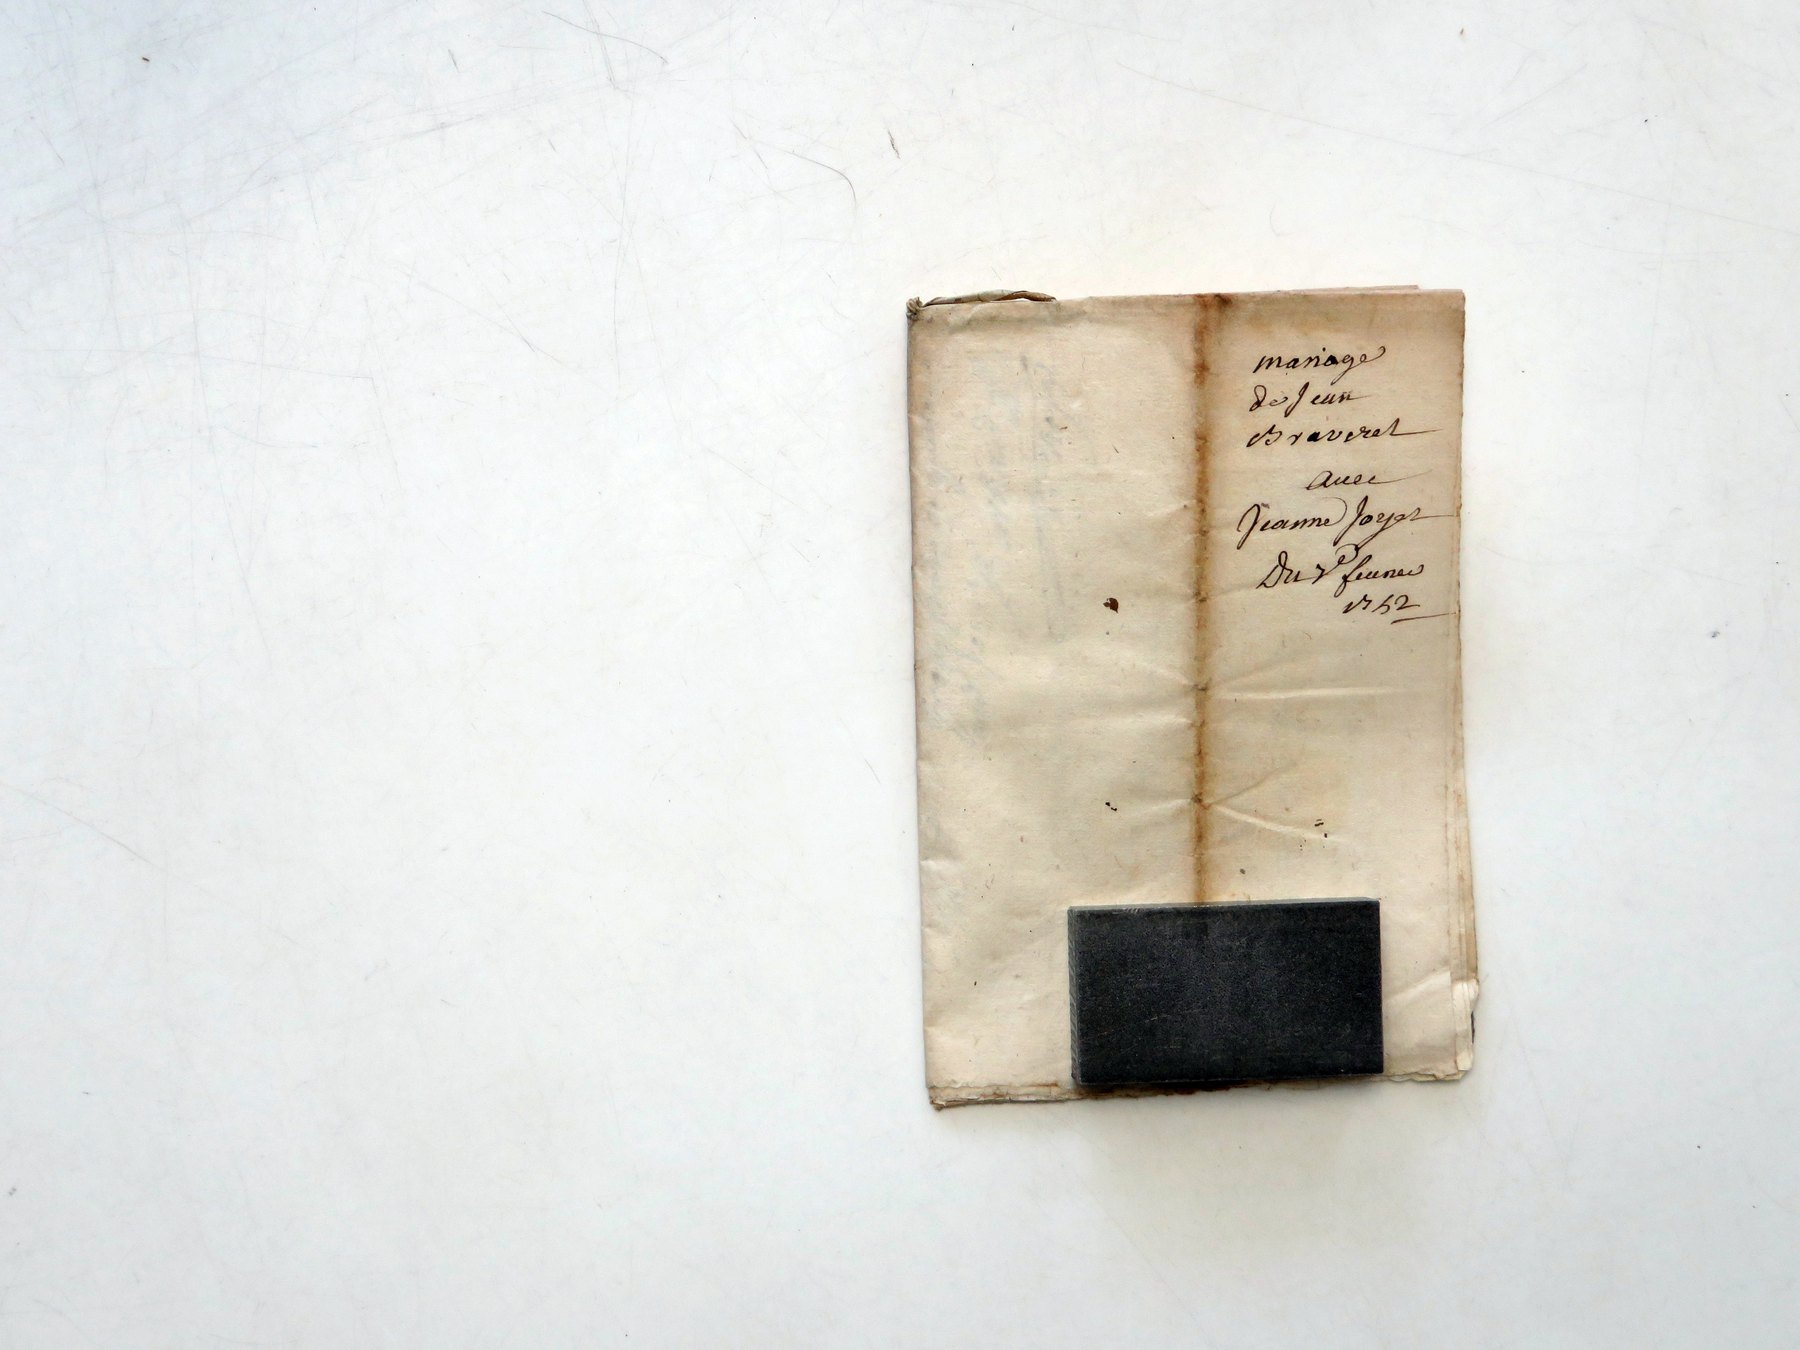 mariage
de Jean
Braveret
auec
Jeanne Joyet
Du 7e feurier
1752